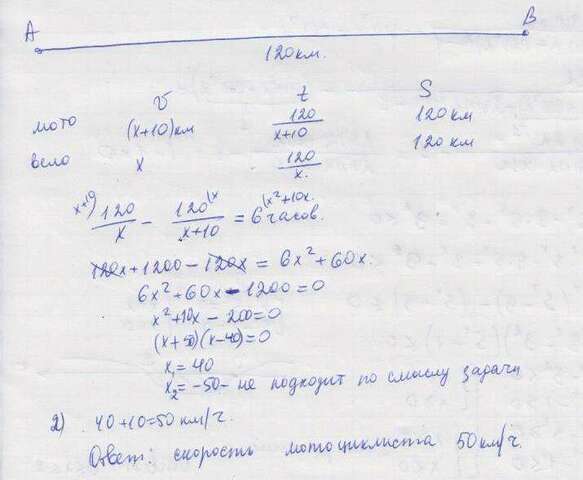 A B
120 км.
v t S
мото (x+10) км 120/x+10 120 км
вело x 120/x. 120 км
x+10) 120/x - 120(x/x+10 = 6 часов. (x²+10x.
120x+1200-120x = 6x²+60x.
6x²+60x-1200=0
x²+10x-200=0
(x+50)(x-40)=0
x₁=40
x₂=-50- не подходит по смыслу задачи
2) 40+10=50 км/ч.
Ответ: скорость мотоциклиста 50 км/ч.